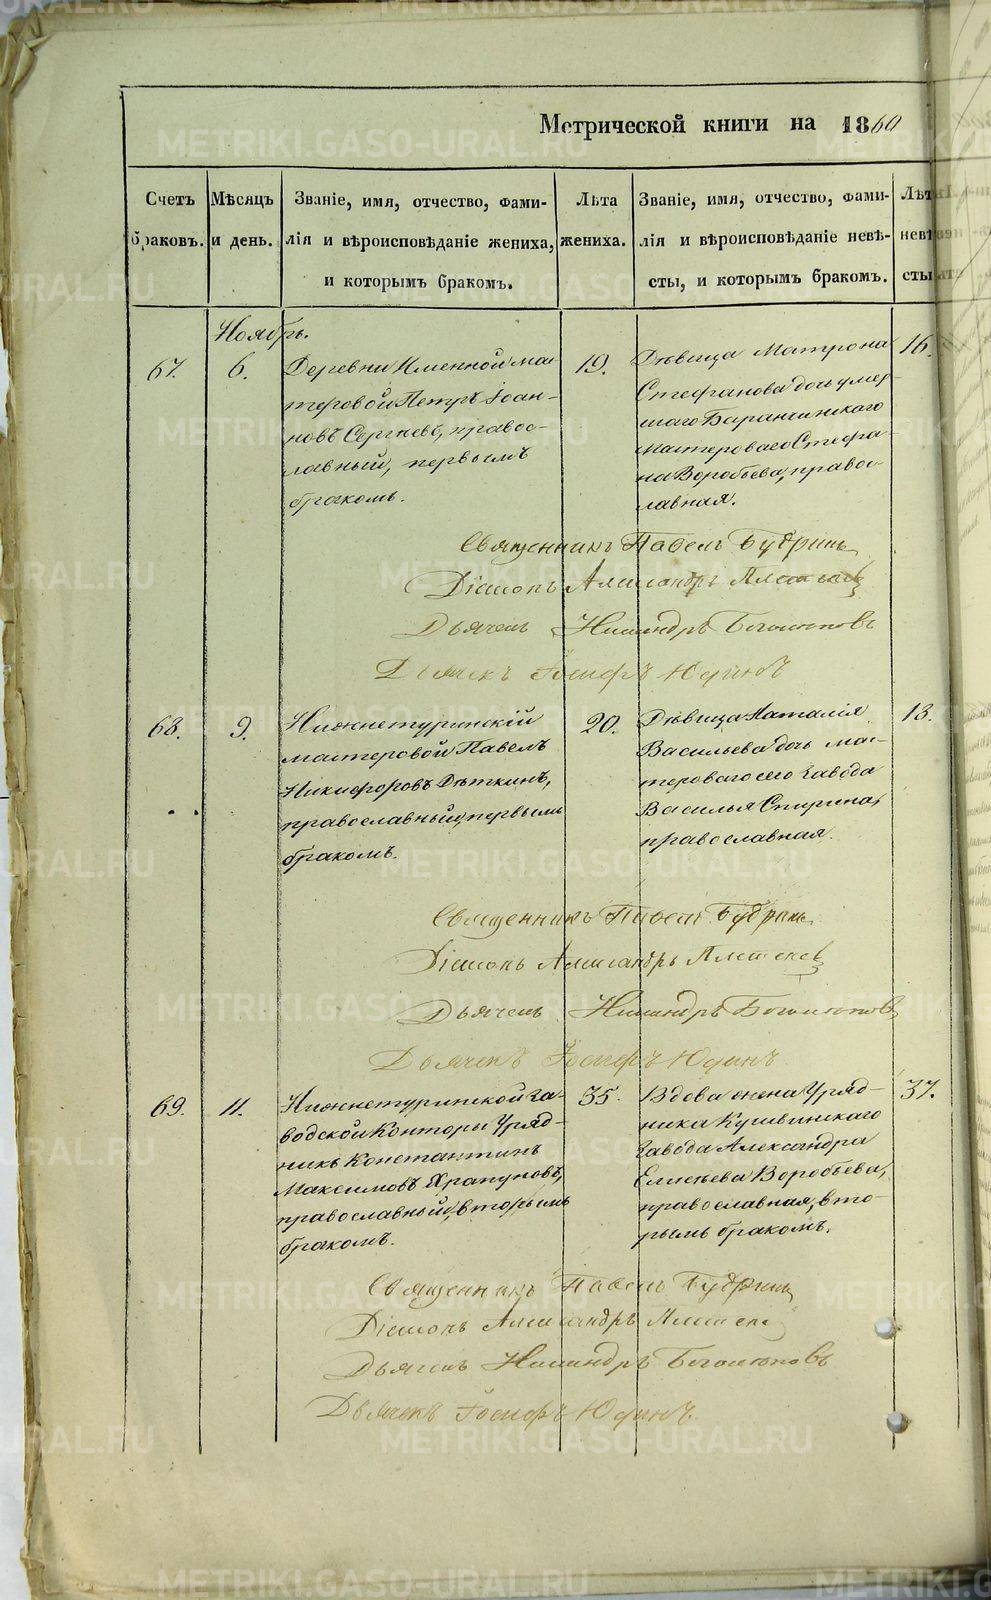 Метрической книги на 1860
Счетъ браковъ.
Мѣсяцъ и день.
Званіе, имя, отчество, фами-
лія и вѣроисповѣданіе жениха,
и которымъ бракомъ.
Лѣта
жениха.
Званіе, имя, отчество, фами-
лія и вѣроисповѣданіе невѣ-
сты, и которымъ бракомъ.
Лѣта
невѣ
сты
Ноябрь.
67.
6.
Деревни Именной мас-
теровой Петръ Іоан-
новъ Сергѣевъ, правос-
лавный, первымъ
бракомъ.
19.
Дѣвица Матрона
Стефанова дочь умер-
шаго Баранчинскаго
мастероваго Стефа-
на Воробьева, правос-
лавная.
16.
Священникъ Павелъ Будринъ
Діаконъ Александръ
Дьячекъ Никандръ Богомоловъ
Дьячекъ Іосифъ Юдинъ
68.
9.
Нижнетуринскій
мастеровой Павелъ
Никифоровъ Дѣткинъ,
православный, первымъ
бракомъ.
20.
Дѣвица Наталія
Васильева дочь мас-
тероваго сего завода
Василья Спирина,
православная.
18.
Священникъ Павелъ Будринъ
Діаконъ Александръ
Дьячекъ Никандръ Богомоловъ
Дьячекъ Іосифъ Юдинъ
69.
11.
Нижнетуринской За-
водской Конторы Уряд-
никъ Константинъ
Максимовъ Храпуновъ,
православный, вторымъ
бракомъ.
35.
Вдова жена Уряд-
ника Кушвинскаго
завода Александра
Елисѣева Воробьева,
православная, вто-
рымъ бракомъ.
37.
Священникъ Павелъ Будринъ
Діаконъ Александръ
Дьячекъ Никандръ Богомоловъ
Дьячекъ Іосифъ Юдинъ
METRIKI.GASO-URAL.RU